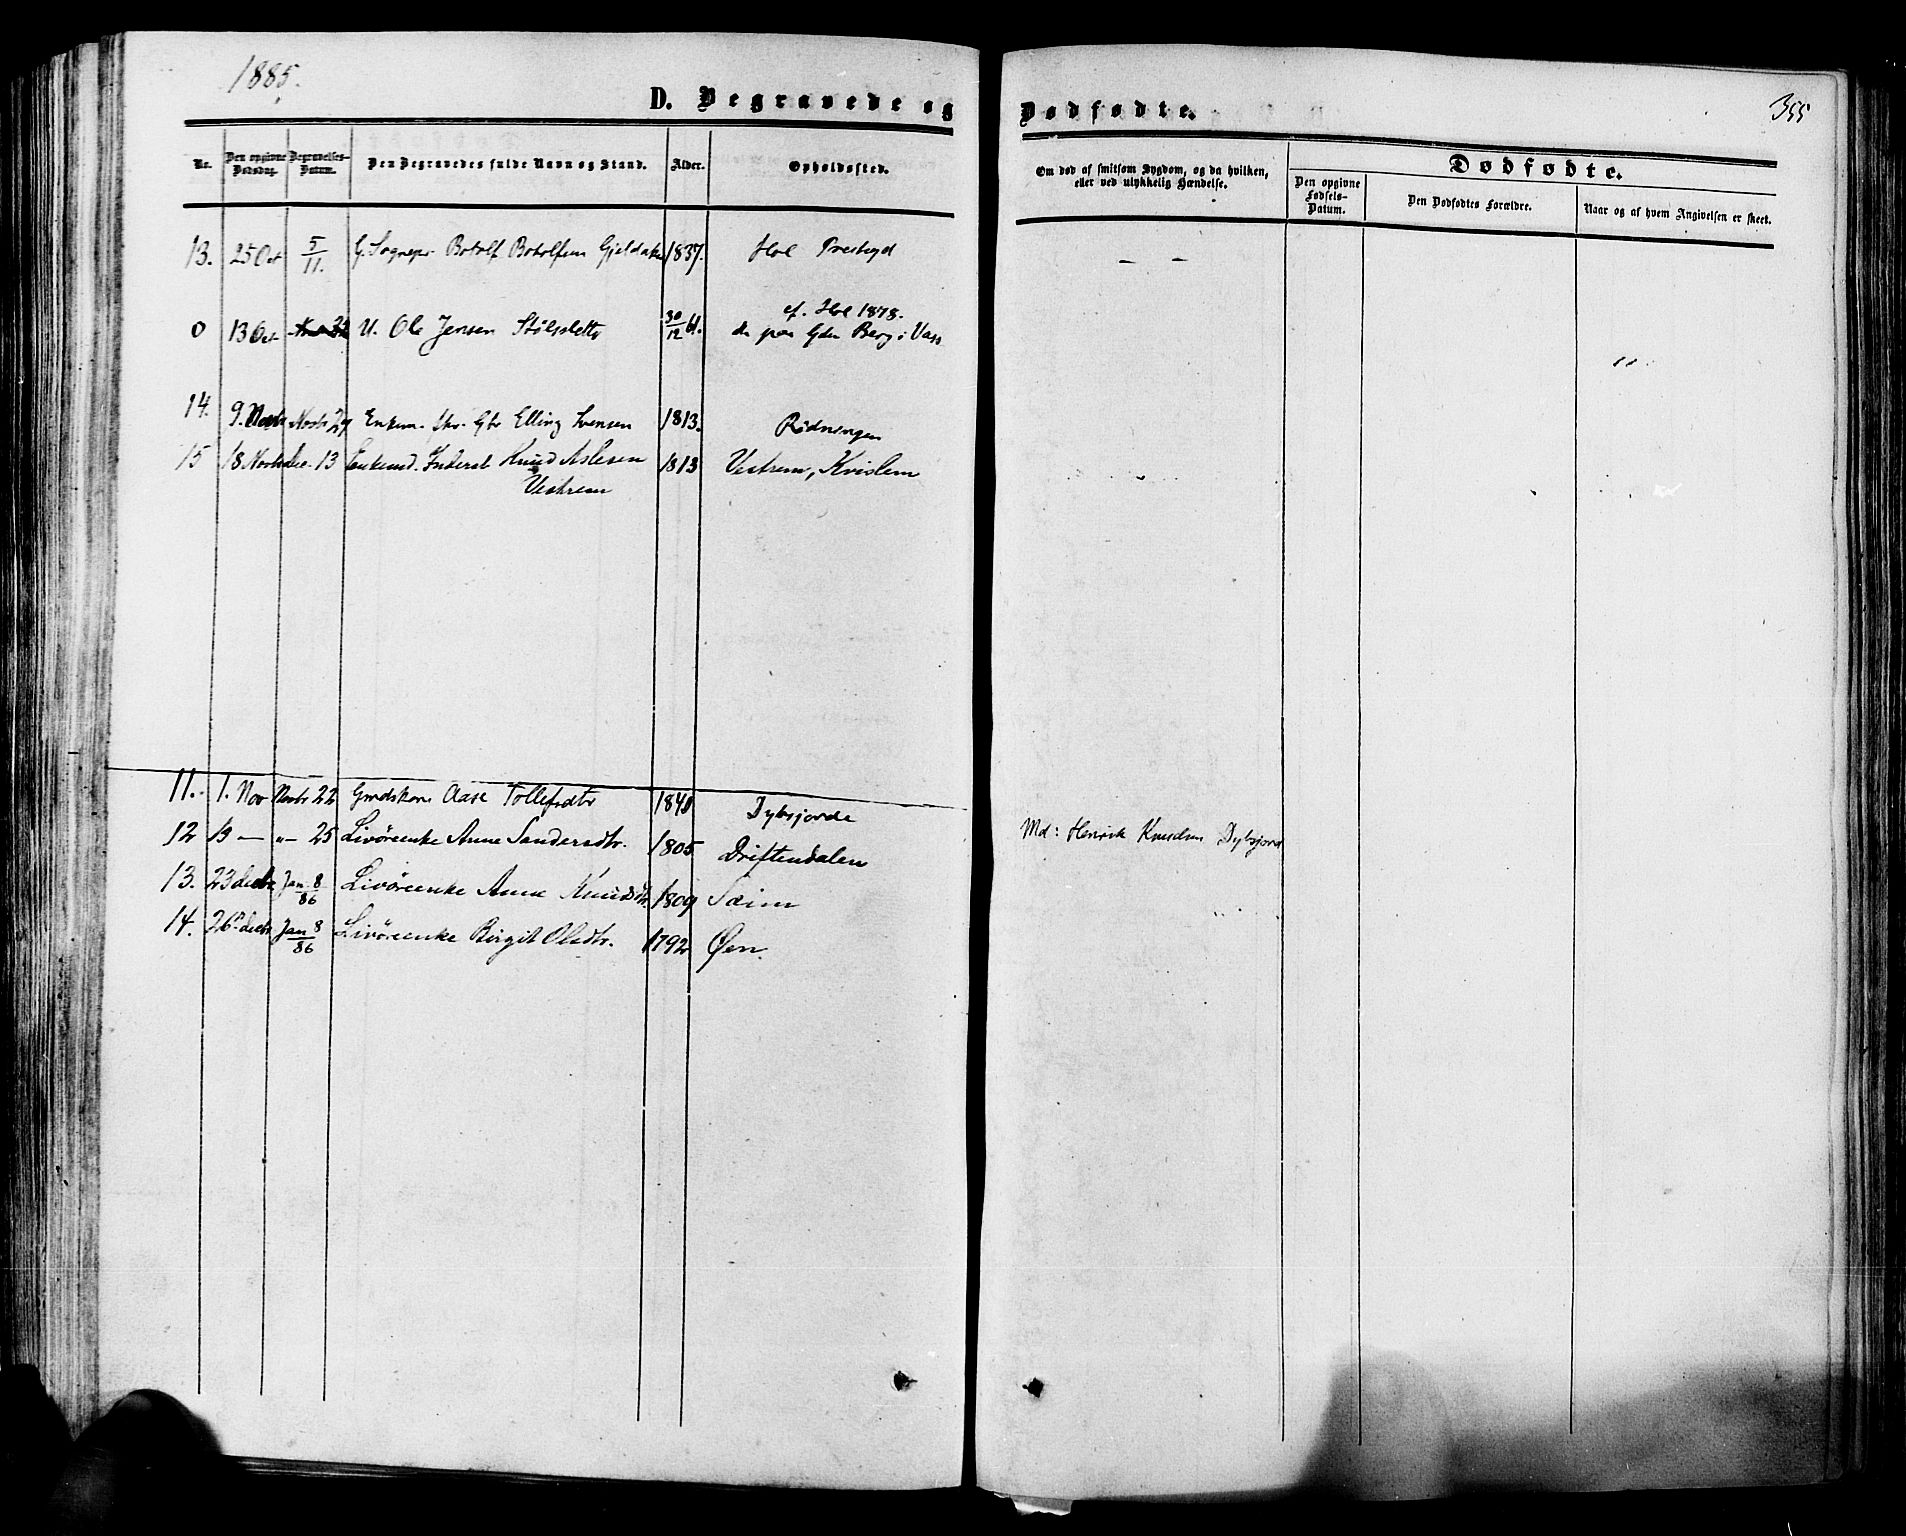 1885.
355
D. Begravede og Dødfødte.
Nr. Den opgivne Dødsdag. Begravelses-Datum. Den Begravedes fulde Navn og Stand. Alder. Opholdssted.
Om død af smitsom Sygdom, og da hvilken, eller ved ulykkelig Hændelse.
Dødfødte.
Den opgivne Fødsels-Datum. Den Dødfødtes Forældre. Naar og af hvem Angivelsen er skeet.
13. 25 Oct 5/11. Botolf Botolfsen 1837. Hol Prestegd
— —
cf. Hol 1878.
0 13 Oct U. Ole Jensen 30/12 61. Berg i Vass
14. 9. Novbr Novbr 29 Enkem. Elling Svensen 1813. Rødningen
15 18 Novbr Dec. 13 Enkemd. Inderst Knud Aslesen 1813 Vestrem, Kvislem
Vestrem
11. 1. Nov Novbr 22 Gmdskone Aase Tollefsdtr 1840 Dybsjorde
12 13 — " — 25 Livøreenke Anne Sandersdtr. 1805 Driftendalen
Md: Henrik Knudsen Dybsjord
13. 23 decbr Jan. 8/86 Livøreenke Anne Knudsdtr. 1809 Seim
14. 26 decbr Jan 8/86 Livøreenke Birgit Olsdtr. 1792 Øen.